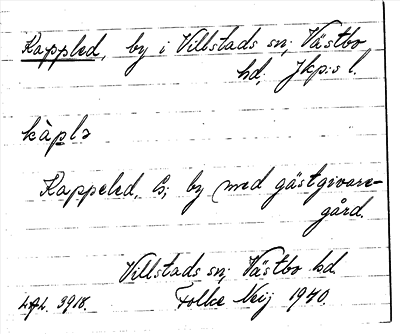 Kappled, by i Villstads sn; Västbo
hd, Jkp:s l.
kàplə
Kappeled, by med gästgivare-
gård.
Villstads sn; Västbo hd
Folke Neij 1940.
3918.